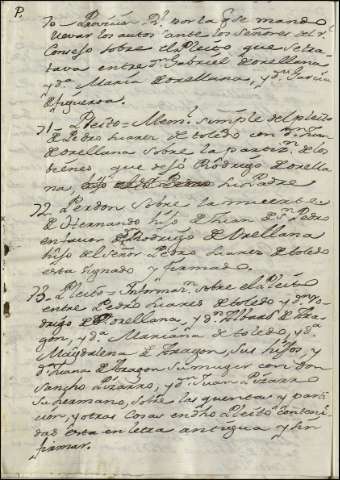 P.
70 - Provision Rl. por la q. se mandó
llevar los autos ante los Señores del rl.
Consejo sobre el Pleito que se tra-
tava entre dn. Gabriel de orellana
y da. Maria de orellana, y dn. Garcia
de figueroa.
71 - Pleito - Meml. simple del pleito
de Pedro suares de toledo con dn. Juan
de orellana sobre la partizn. de los
bienes, que dejó Rodrigo de orella-
na, su Padre
72 Perdon sobre la muerte
de Hernando hijo de Juan de Sn. Pedro
en favor de Rodrigo de Orellana
hijo del Señor Pedro suares de toledo
esta signado y firmado.
73 - Pleito - Informn. sobre el Pleito
entre Pedro suares de toledo y dn. Ro-
drigo de orellana, y dn. Albaro de Ara-
gon, y da. Mariana de toledo, y da.
Magdalena de Aragon, sus hijos, y
da. Juana de Aragon su muger con don
Sancho Pizarro, y dn. Juan Pizarro
su hermano, sobre las quentas y parti-
cion, y otras cosas en dho Pleito conteni-
das esta en letra antigua y sin
firmar.